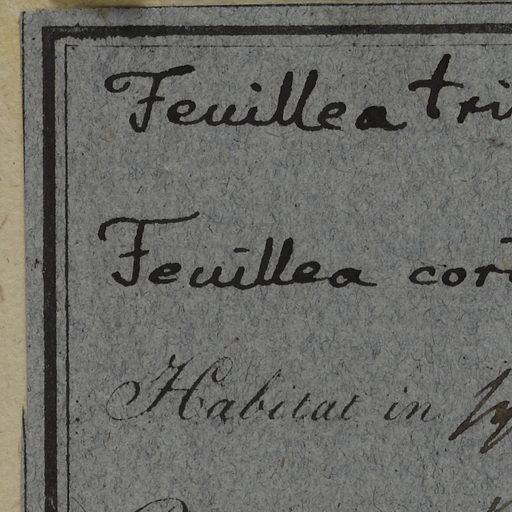 Feuillea tri
Feuillea cor
Habitat in